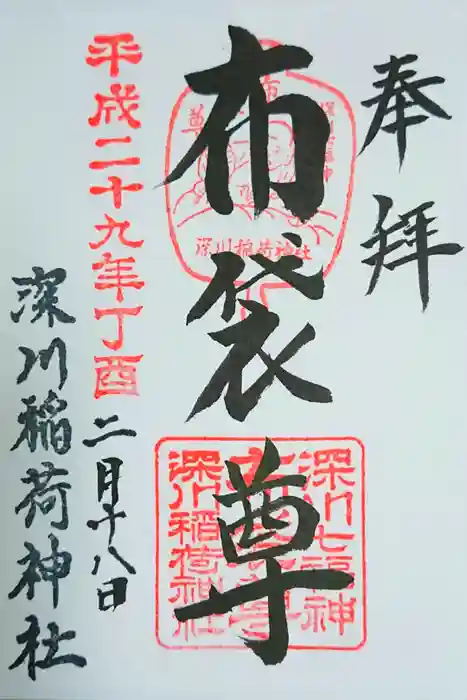 奉拝
布袋尊
平成二十九年丁酉
二月十八日
深川稲荷神社
布
尊
深川七福神
深川稲荷神社
深川七福神
布袋尊
深川稲荷神社